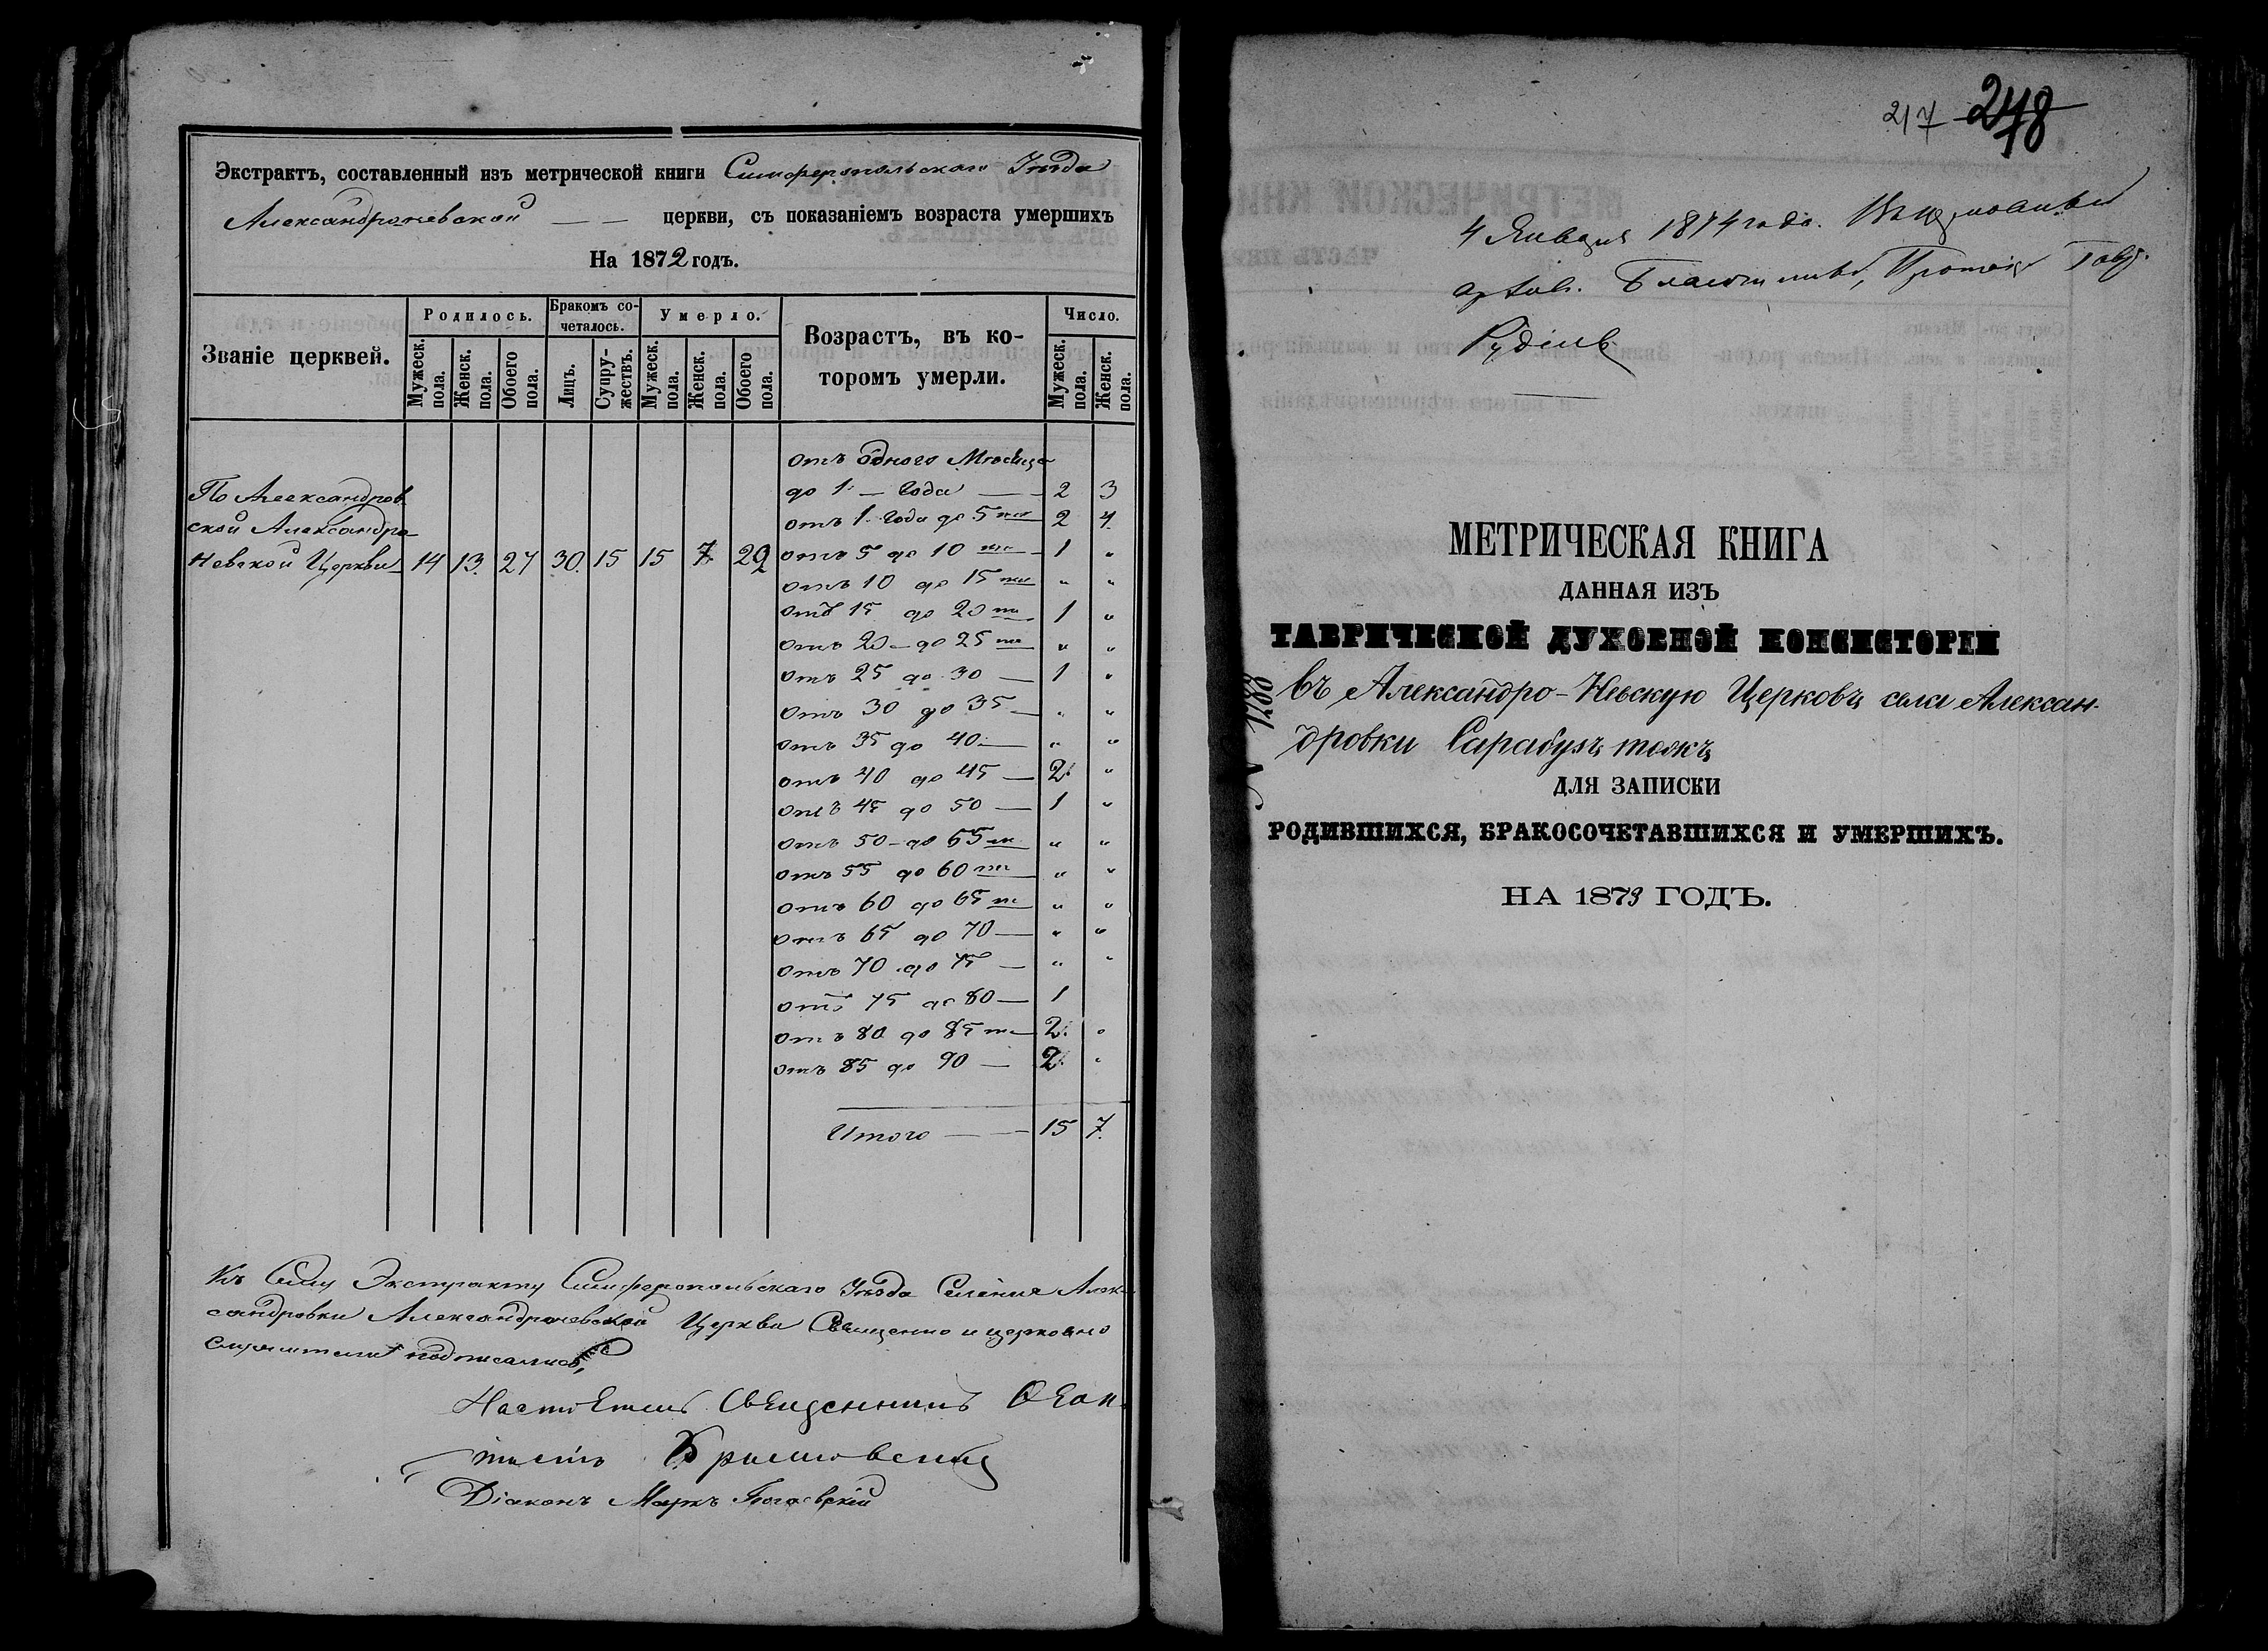 Экстрактъ, составленный изъ метрической книги Симферопольскаго Уѣзда
Александроневской — — церкви, съ показаніемъ возраста умершихъ
На 1872 годъ.
Званіе церквей.
Родилось.
Бракомъ со-
четалось.
Умерло.
Возрастъ, въ ко-
торомъ умерли.
Число.
Мужеск. пола.
Женск. пола.
Обоего пола.
Лицъ.
Супру-
жествъ.
Мужеск. пола.
Женск. пола.
Обоего пола.
Мужеск. пола.
Женск. пола.
отъ одного Мѣсяца
до 1 — Года — 2 3
отъ 1 Года до 5 ти 2 4
отъ 5 до 10 ти 1 "
отъ 10 до 15 ти " "
отъ 15 до 20 ти 1 "
отъ 20 — до 25 ти " "
отъ 25 до 30 — 1 "
отъ 30 до 35 — " "
отъ 35 до 40 — " "
отъ 40 до 45 — 2 "
отъ 45 до 50 — 1 "
отъ 50 — до 55 ти " "
отъ 55 до 60 ти " "
отъ 60 до 65 ти " "
отъ 65 до 70 — " "
отъ 70 до 75 — " "
отъ 75 до 80 — 1
отъ 80 до 85 ти — 2 "
отъ 85 до 90 — 2 "
Итого — — 15 7.
По Александров
ской Александро
Невской Церкви 14 13. 27 30. 15 15 7 22
Къ Сему Экстракту Симферопольскаго Уѣзда Селенія Алек-
сандровки Александроневской Церкви Священно и церковно
служители подписались,
Настоятель Священникъ Ѳеок
тистъ
Діаконъ Маркъ
217 248
4 Января 1874 года.
МЕТРИЧЕСКАЯ КНИГА
ДАННАЯ ИЗЪ
ТАВРИЧЕСКОЙ ДУХОВНОЙ КОНСИСТОРІИ
въ Александро-Невскую Церковь села Алексан-
дровки Сарабузъ тожъ
ДЛЯ ЗАПИСКИ
РОДИВШИХСЯ, БРАКОСОЧЕТАВШИХСЯ И УМЕРШИХЪ.
НА 1873 ГОДЪ.